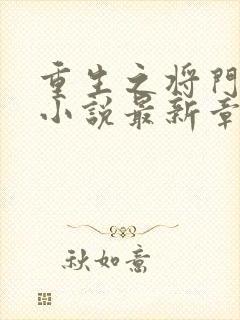 重生之将門
小説最新章
秋如意